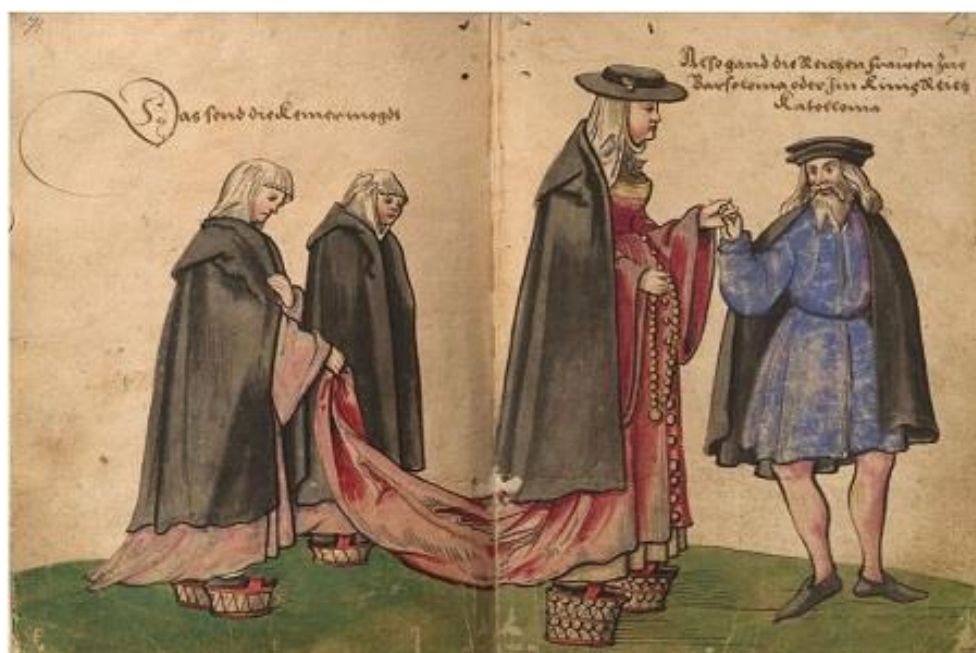 Das send die Kemermegdt
Also gand die Reichen frauwen zue
Barselona oder Im Kunig Reich
Katellonia